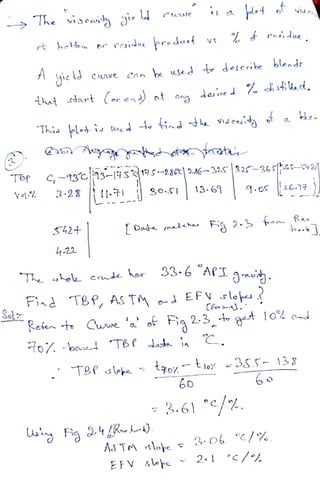 → The "viscosity yield curve" is a plot of visc
of bottom or residue product vs % of residue.
A yield curve can be used to describe blends
that start (or end) at any desired % distilled.
This plot is used to find the viscosity of a
TBP C₁-93°C 93-175°C 175-286°C 286-325 325-365
Vol.% 3.28 11.71 30.51 13.69 9.05 26.77
542+ [Data matches Fig 2.3 from
4.22
The whole crude has 33.6 °API gravity.
Find TBP, ASTM and EFV slopes?
Sol:- Refer to Curve 'a' of Fig 2.3, to get 10% and
70% based TBP data in °C.
∴ TBP slope = t70% - t10% / 60 = 355 - 138 / 60
= 3.61 °C/%.
Using Fig 2.4
ASTM slope = 3.06 °C/%
EFV slope = 2.1 °C/%